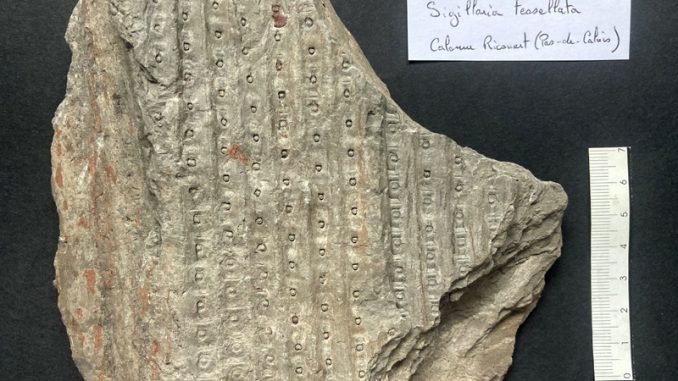 Sigillaria tessellata
Calonne Ricouart (Pas-de-Calais)
7
6
5
4
3
2
1
0